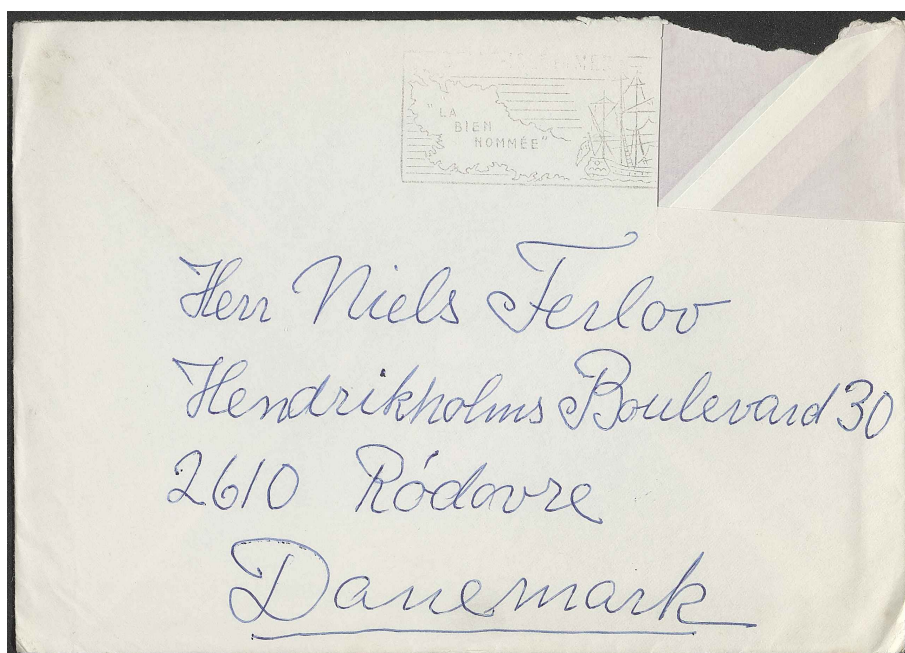 "LA
BIEN
NOMMÉE"
Herr Niels Ferlov
Hendrikholms Boulevard 30
2610 Ródovre
Danemark